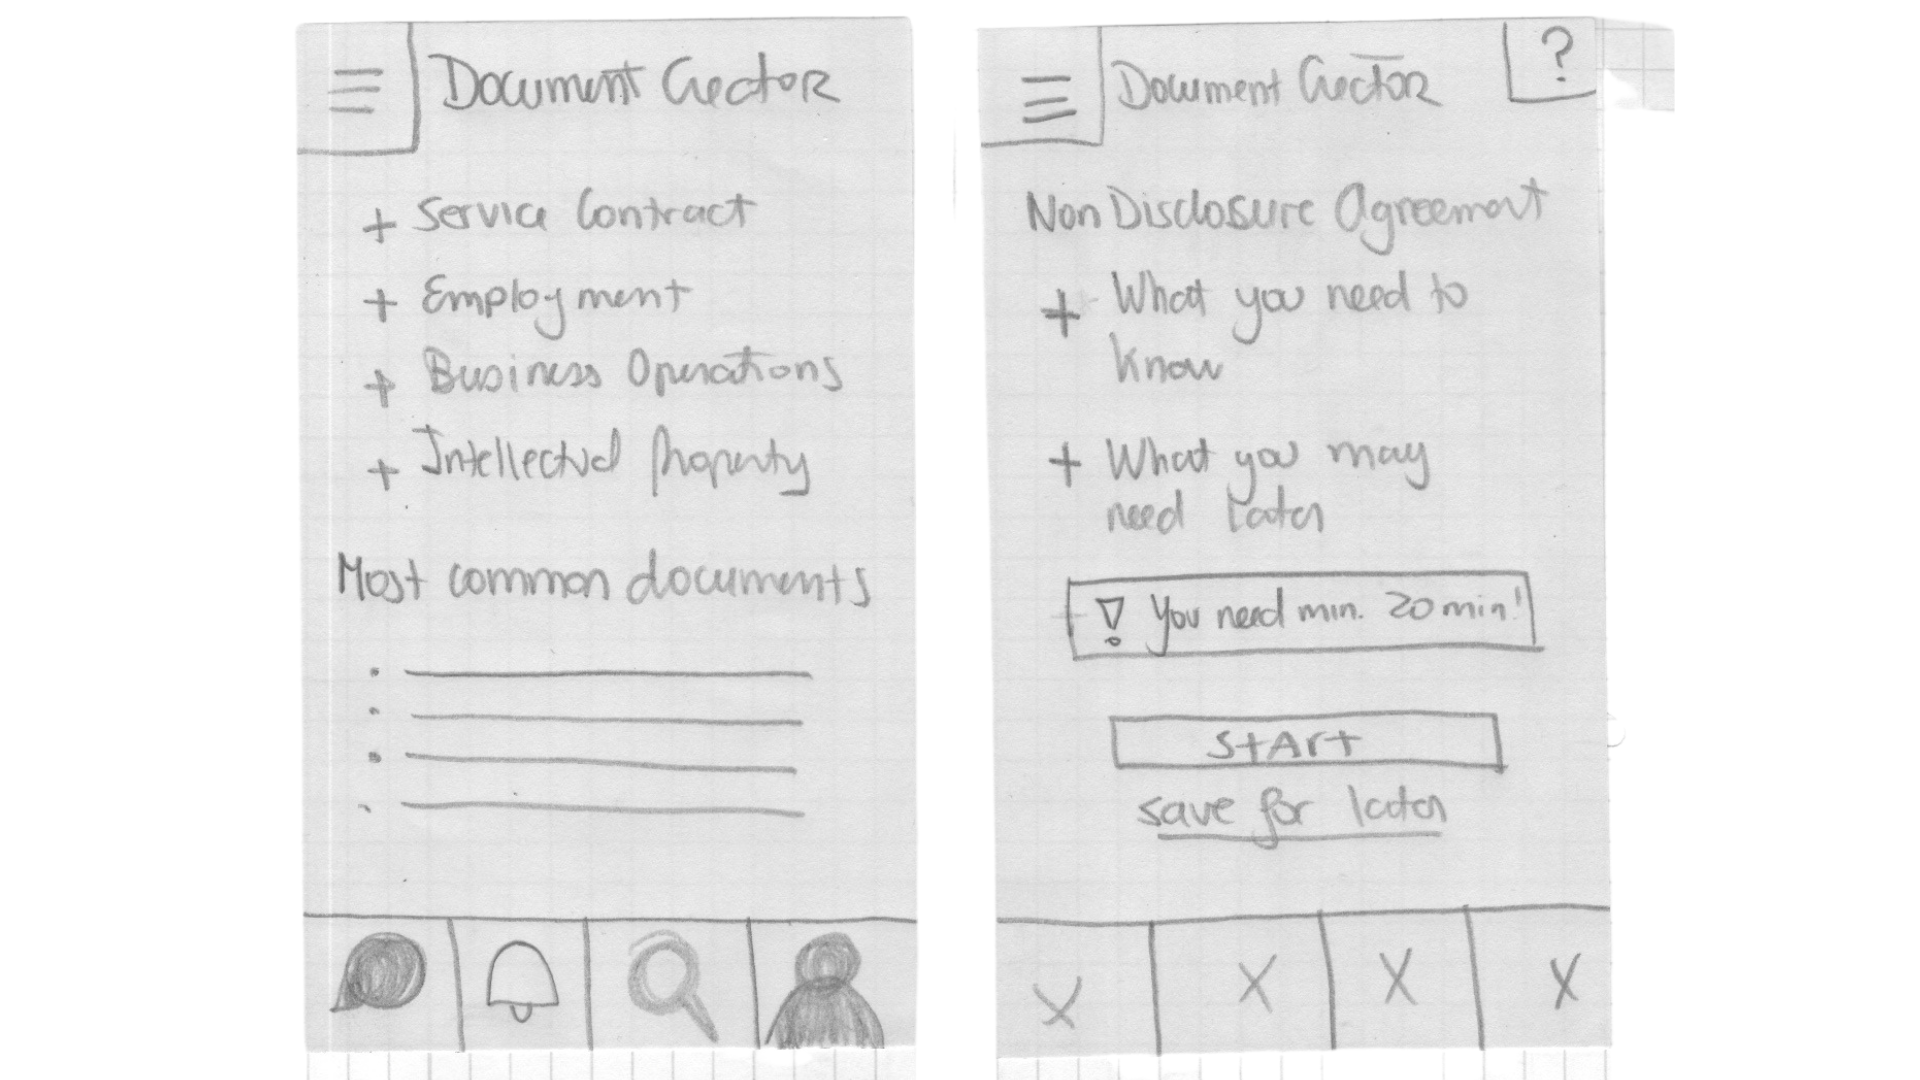 Document Creator
+ Service Contract
+ Employment
+ Business Operations
+ Intellectual Property
Most common documents
Document Creator
?
Non Disclosure Agreement
+ What you need to
know
+ What you may
need later
! You need min. 20 min!
START
save for later
X X X X